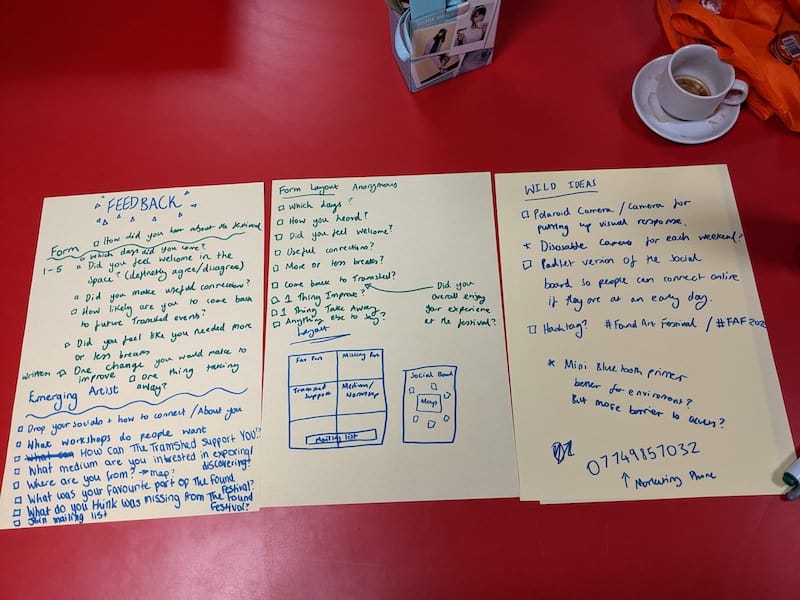 FEEDBACK
Form
How did you hear about the festival
Which days did you come?
1-5
Did you feel welcome in the
space? (definitely agree/disagree)
Did you make useful connections?
How likely are you to come back
to future Tramshed events?
Did you feel like you needed more
or less breaks
Written
One change you would make to
improve
one thing taking
away?
Emerging Artist
Drop your socials + how to connect / About you
What workshops do people want
What can HOW Can The TramShed Support YOU?
What medium are you interested in exporing/
discovering?
Where are you from? → map?
What was your favourite part of The Found
Festival?
What do you think was missing from The found
Festival?
Join mailing list
Form Layout Anonymous
Which days?
How you heard?
Did you feel welcome?
Useful connections?
More or less breaks?
Come back to Tramshed?
1 Thing Improve?
1 Thing Take Away
Anything else to say?
Did you
overall enjoy
your experience
at the festival?
Layout
Fav Part
Missing Part
Tramshed
Support
Medium/
Workshop
Mailing list
Social Board
Map
WILD IDEAS
Polaroid Camera / Camera for
putting up visual response.
Disposable Camera for each weekend?
Padlet version of the social
board so people can connect online
if they are at an early day.
Hashtag? #Found Art Festival / #FAF202
Mini Bluetooth printer
better for environment?
But more barrier to access?
07749857032
↑ Marketing Phone